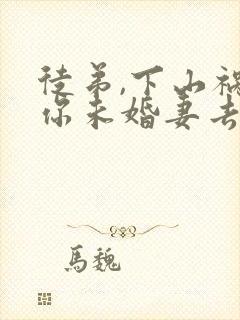 徒弟,下山祸
你未婚妻去
馬魏